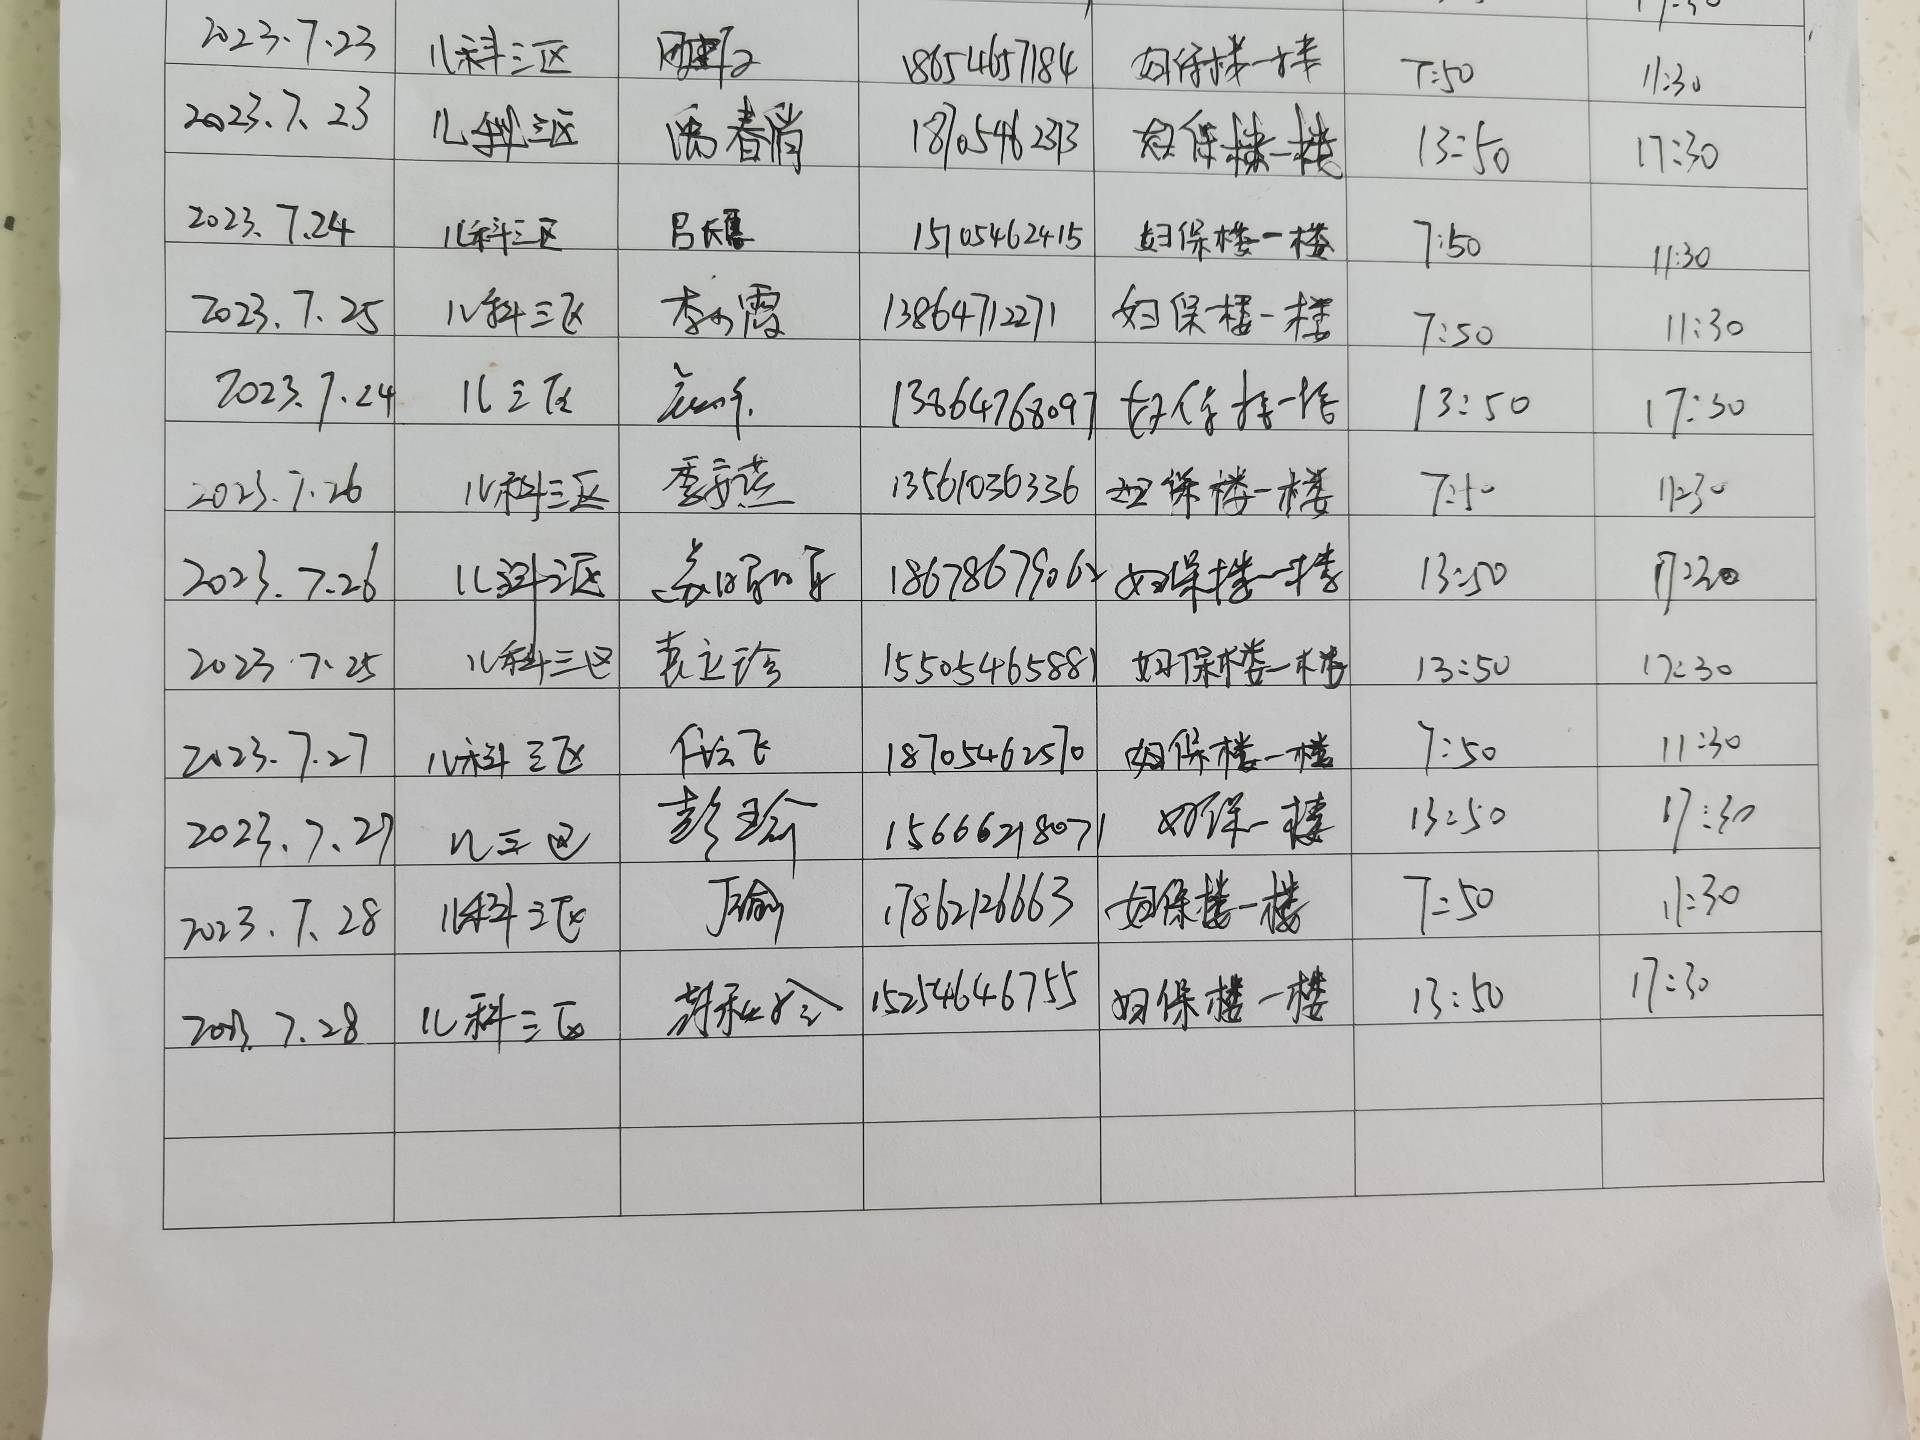 17:30
2023.7.23 儿科三区 18654657184 妇保楼一楼 7:50 11:30
2023.7.23 儿科三区 禹春肖 18705462313 妇保楼一楼 13:50 17:30
2023.7.24 儿科三区 吕 15105462415 妇保楼一楼 7:50 11:30
2023.7.25 儿科三区 李小霞 13864712271 妇保楼一楼 7:50 11:30
2023.7.24 儿三区 13864768097 妇保楼一楼 13:50 17:30
2023.7.26 儿科三区 13561036336 妇保楼一楼 7:50 11:30
2023.7.26 儿科三区 18678679062 妇保楼一楼 13:50 17:30
2023.7.25 儿科三区 袁立珍 15505465881 妇保楼一楼 13:50 17:30
2023.7.27 儿科三区 任云飞 18705462570 妇保楼一楼 7:50 11:30
2023.7.27 儿三区 彭玉瑜 15666218071 妇保一楼 13:50 17:30
2023.7.28 儿科三区 17862126663 妇保楼一楼 7:50 11:30
2023.7.28 儿科三区 15254646755 妇保楼一楼 13:50 17:30